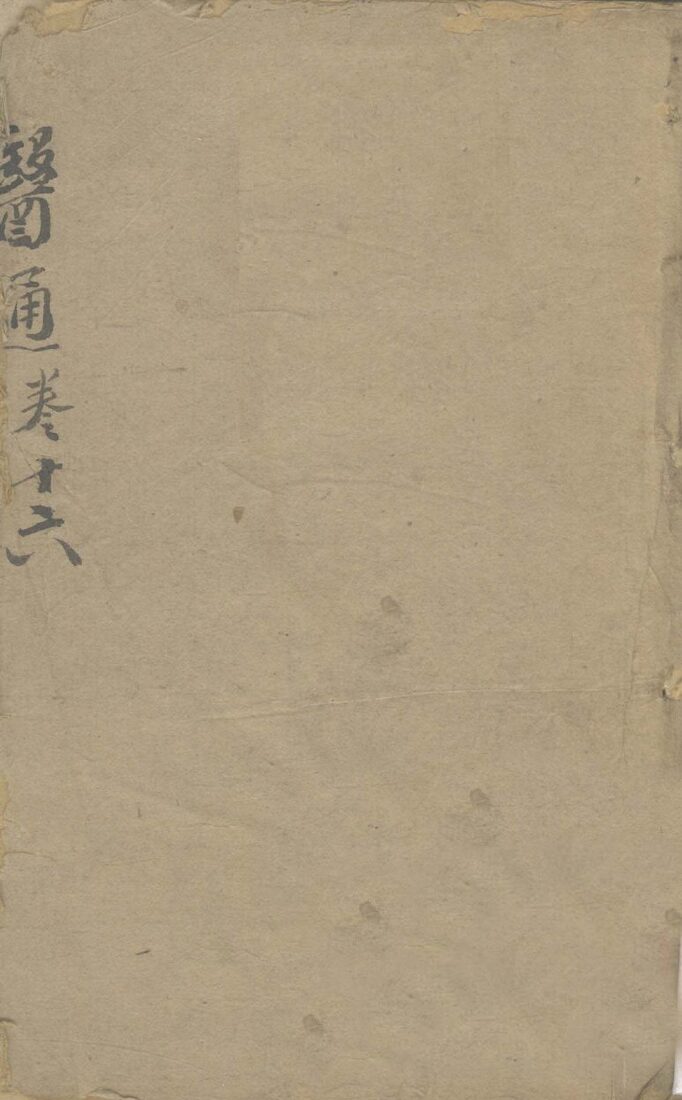 醫通卷十六